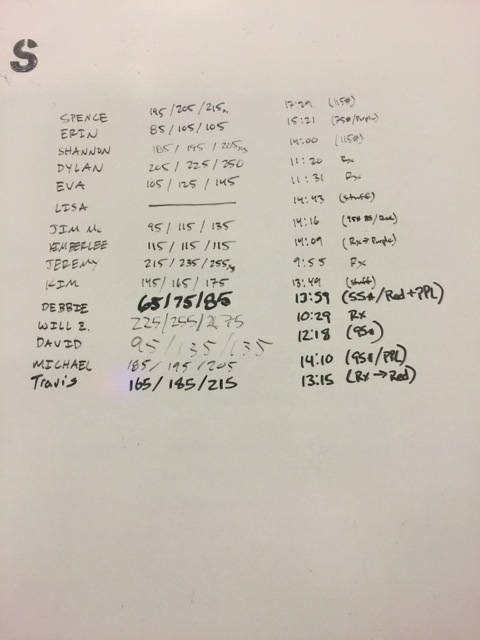 S
SPENCE 195/205/215 17:29 (115#)
ERIN 85/105/105 15:21 (75#/Purple)
SHANNON 185/195/205 14:00 (115#)
DYLAN 205/225/250 11:20 Rx
EVA 105/125/145 11:31 Rx
LISA 14:43 (stuff)
JIM Mc 95/115/135 14:16
KIMBERLEE 115/115/115 14:09 (Rx→Purple)
JEREMY 215/235/255 9:55 Rx
KIM 145/165/175 13:49 (stuff)
DEBBIE 65/75/85 13:59 (55#/Red+PPL)
WILL E. 225/255/275 10:29 Rx
DAVID 95/135/135 12:18 (95#)
MICHAEL 185/195/205 14:10 (95#/PPL)
Travis 165/185/215 13:15 (Rx→Red)